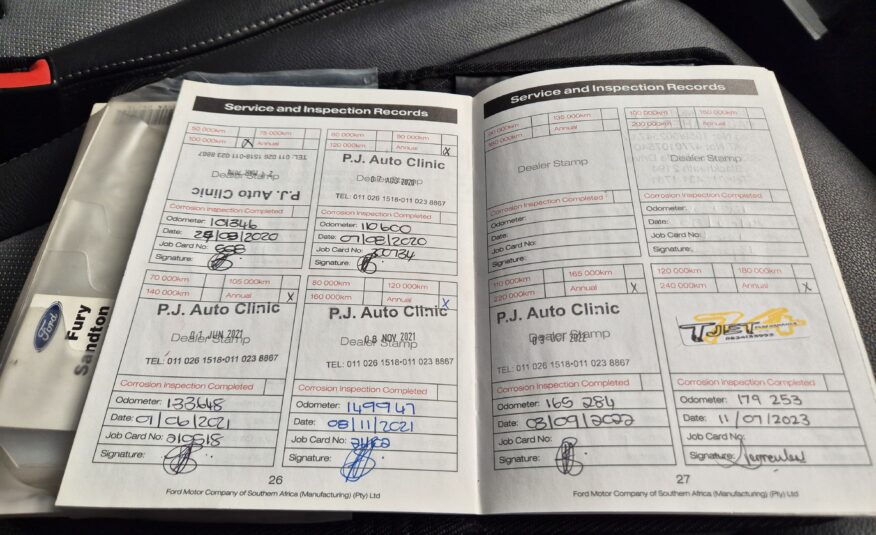 Service and Inspection Records
50 000km 75 000km
100 000km X Annual
TEL: 011 026 1518-011 023 8867
Dealer Stamp
P.J. Auto Clinic
Corrosion Inspection Completed
Odometer: 101346
Date: /08/2020
Job Card No:
Signature:
60 000km 90 000km
120 000km Annual X
P.J. Auto Clinic
Dealer Stamp
TEL: 011 026 1518-011 023 8867
Corrosion Inspection Completed
Odometer: 110600
Date: 07/08/2020
Job Card No: 00734
Signature:
70 000km 105 000km
140 000km Annual X
P.J. Auto Clinic
Dealer Stamp
01 JUN 2021
TEL: 011 026 1518-011 023 8867
Corrosion Inspection Completed
Odometer: 133648
Date: 01/06/2021
Job Card No: 210518
Signature:
80 000km 120 000km
160 000km Annual X
P.J. Auto Clinic
Dealer Stamp
08 NOV 2021
TEL: 011 026 1518-011 023 8867
Corrosion Inspection Completed
Odometer: 149947
Date: 08/11/2021
Job Card No:
Signature:
26
Ford Motor Company of Southern Africa (Manufacturing) (Pty) Ltd
Service and Inspection Records
90 000km 135 000km
180 000km Annual
Dealer Stamp
Corrosion Inspection Completed
Odometer:
Date:
Job Card No:
Signature:
100 000km 150 000km
200 000km Annual
Dealer Stamp
Corrosion Inspection Completed
Odometer:
Date:
Job Card No:
Signature:
110 000km 165 000km
220 000km Annual X
P.J. Auto Clinic
Dealer Stamp
TEL: 011 026 1518-011 023 8867
Corrosion Inspection Completed
Odometer: 165 284
Date: 03/09/2022
Job Card No:
Signature:
120 000km 180 000km
240 000km Annual X
TJET
Corrosion Inspection Completed
Odometer: 179 253
Date: 11/07/2023
Job Card No:
Signature:
27
Ford Motor Company of Southern Africa (Manufacturing) (Pty) Ltd
Ford
Fury
Sandton